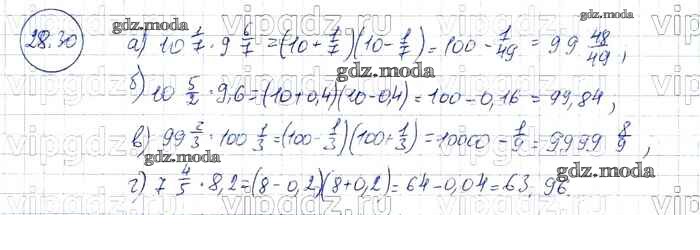 28.30
а) 10 1/7 · 9 6/7 = (10 + 1/7)(10 - 1/7) = 100 - 1/49 = 99 48/49,
б) 10 5/2 · 9,6 = (10 + 0,4)(10 - 0,4) = 100 - 0,16 = 99,84,
в) 99 2/3 · 100 1/3 = (100 - 1/3)(100 + 1/3) = 10000 - 1/9 = 9999 8/9,
г) 7 4/5 · 8,2 = (8 - 0,2)(8 + 0,2) = 64 - 0,04 = 63,96.
gdz.moda
gdz.moda
gdz.moda
gdz.moda
gdz.moda
gdz.moda
vipgdz.ru
vipgdz.ru
vipgdz.ru
vipgdz.ru